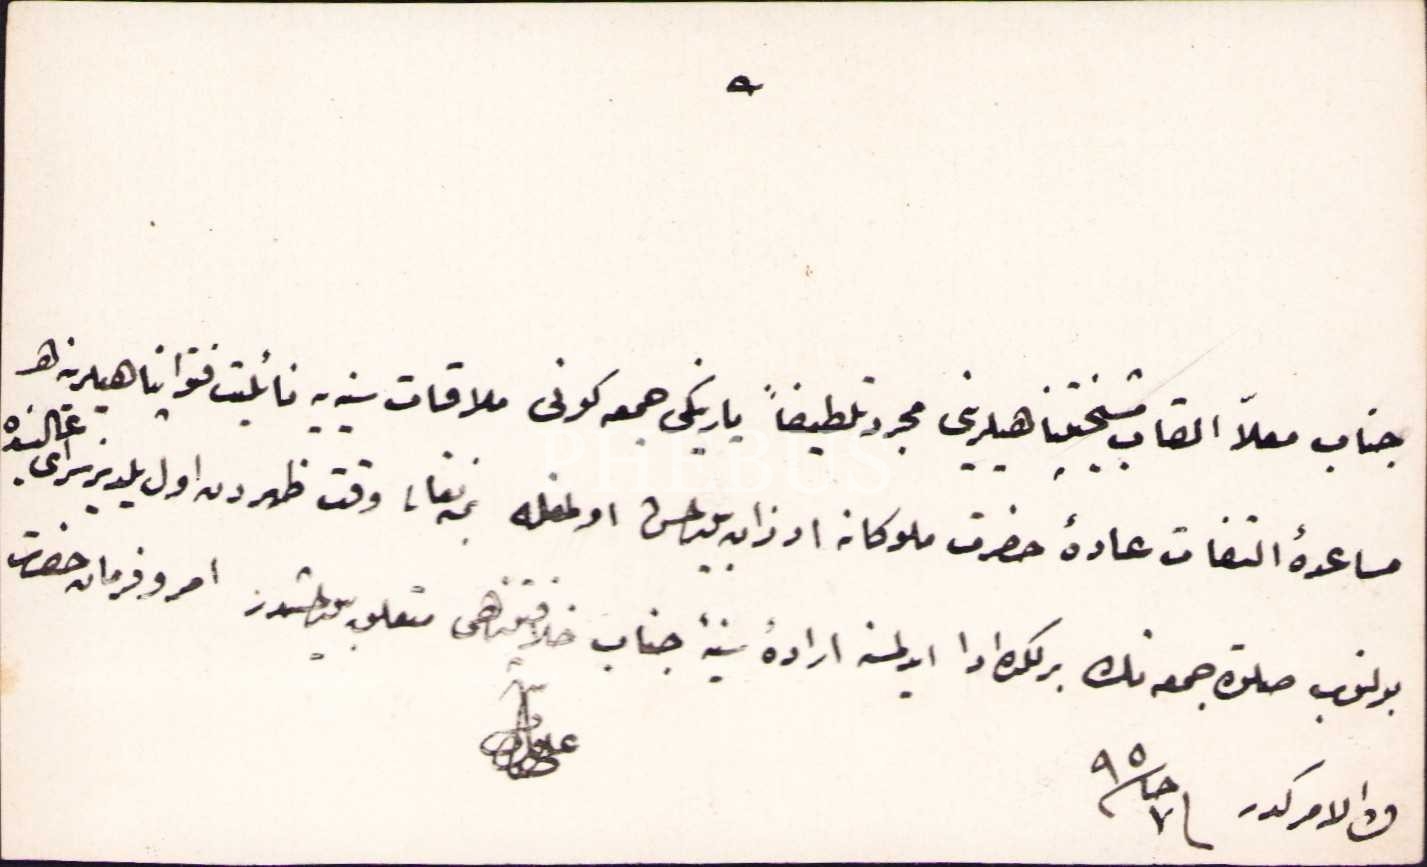 جناب معلّا القاب مشیختپناهیلرینی مجرد تلطیفاً یارینکی جمعه کونی ملاقات سنیه یه نائلیت فتوا پناهیلرینه
مساعدۀ التفات عادۀ حضرت ملوکانه ارزان بیورلمش اولمغله بمنه تعالی وقت ظهردن اول یلدیز سرای عالیسنده
بولنوب صلوة جمعه نك برلکده ادا ایدلمسی ارادۀ سنیۀ جناب خلافتپناهی متعلق بیورلمشدر امر و فرمان حضرت
من له الامرکدر
PHEBUS